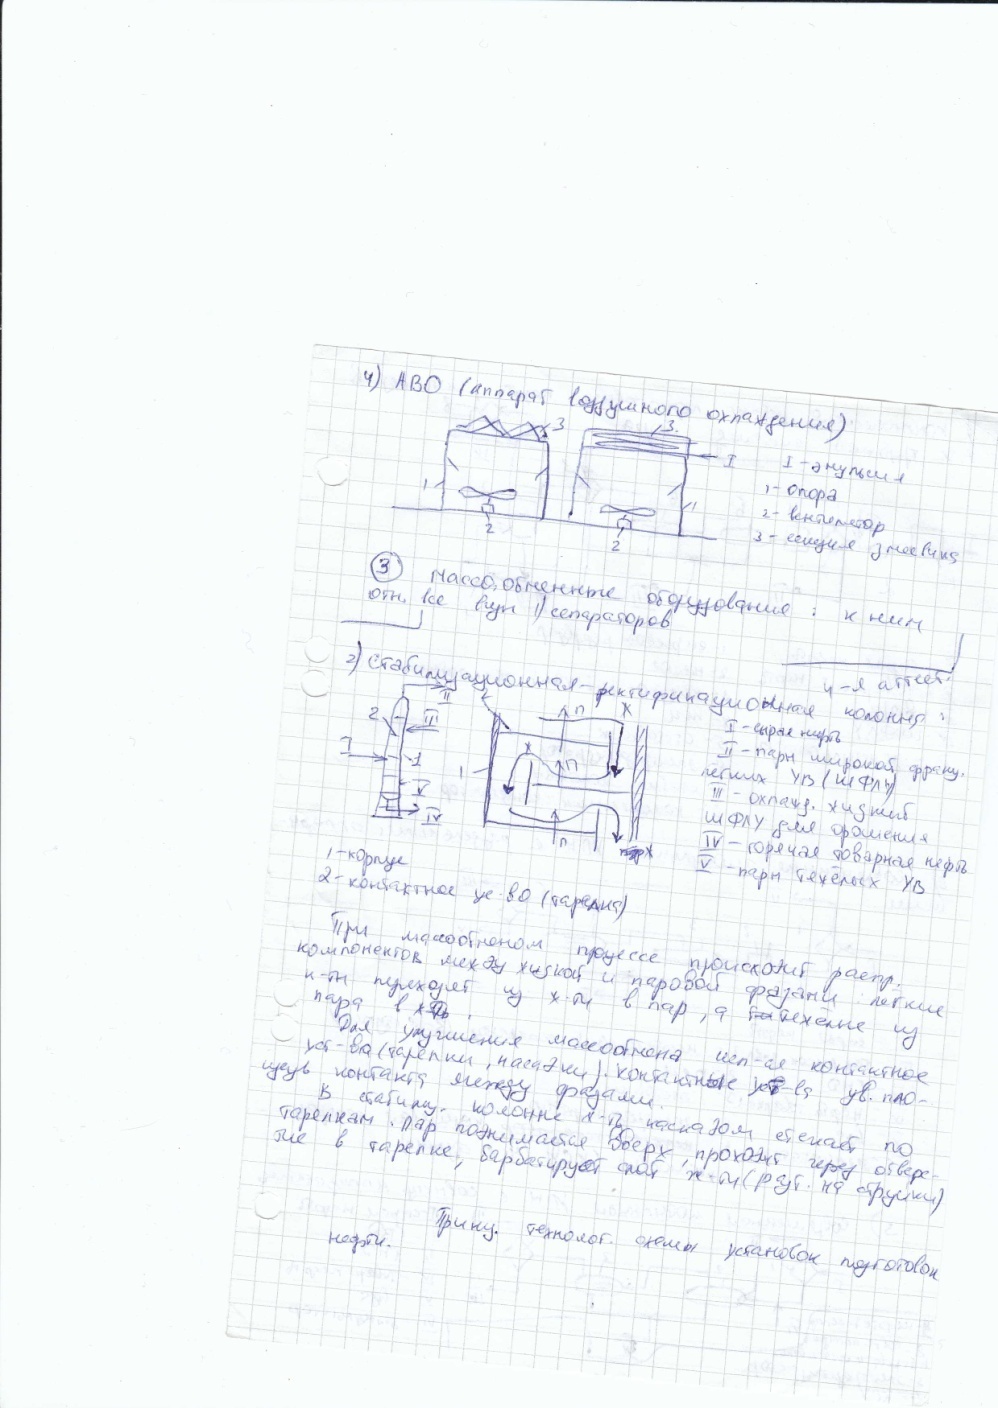 4) АВО (аппарат воздушного охлаждения)
3
3.
I
1
1
2
2
I - эмульсия
1- опора
2- вентилятор
3- секция змеевика
3
Массообменное оборудование : к ним
отн. все виды 1) сепараторов
4-я аттест.
2) Стабилизационная-ректификационная колонна :
II
2
III
I
1
V
IV
1
п
х
х
п
п
х
I - сырая нефть
II - пары широкой фракц.
лёгких УВ (ШФЛУ)
III - охлажд. жидкий
ШФЛУ для орошения
IV - горячая товарная нефть
V - пары тяжёлых УВ
1- корпус
2- контактное ус-во (тарелка)
При массообменом процессе происходит распр.
компонентов между жидкой и паровой фазами лёгкие
к-ты переходят из ж-ти в пар, а тяжёлые из
пара в ж-ть.
Для улучшения массообмена исп-ся контактное
уст-ва (тарелки, насадки). Контактные уст-ва ув. пло-
щадь контакта между фазами.
В стабилиз. колонне ж-ть каскадом стекает по
тарелкам. Пар поднимается вверх, проходит через отверс-
тие в тарелке, барбатирует слой ж-ти (разб. на струйки)
Принц. технолог. схемы установок подготовок
нефти.